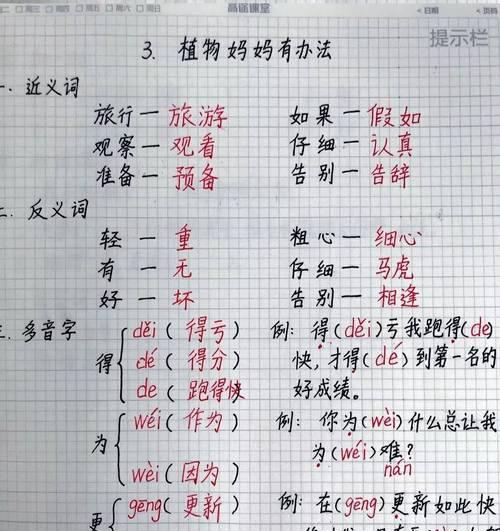 高途课堂
日期
页码
提示栏
3. 植物妈妈有办法
一、近义词
旅行一旅游 如果一假如
观察一观看 仔细一认真
准备一预备 告别一告辞
二、反义词
轻一重 粗心一细心
有一无 仔细一马虎
好一坏 告别一相逢
三、多音字
得 děi( 得亏) 例: 得(děi)亏我跑得(de)
dé( 得分) 快,才得(dé)到第一名的
de( 跑得快 好成绩。
为 wéi( 作为) 例: 你为(wèi)什么总让我
wèi( 因为) 为(wéi)难?
nán
更 gēng( 更新) 例: 在(gēng)更新如此快